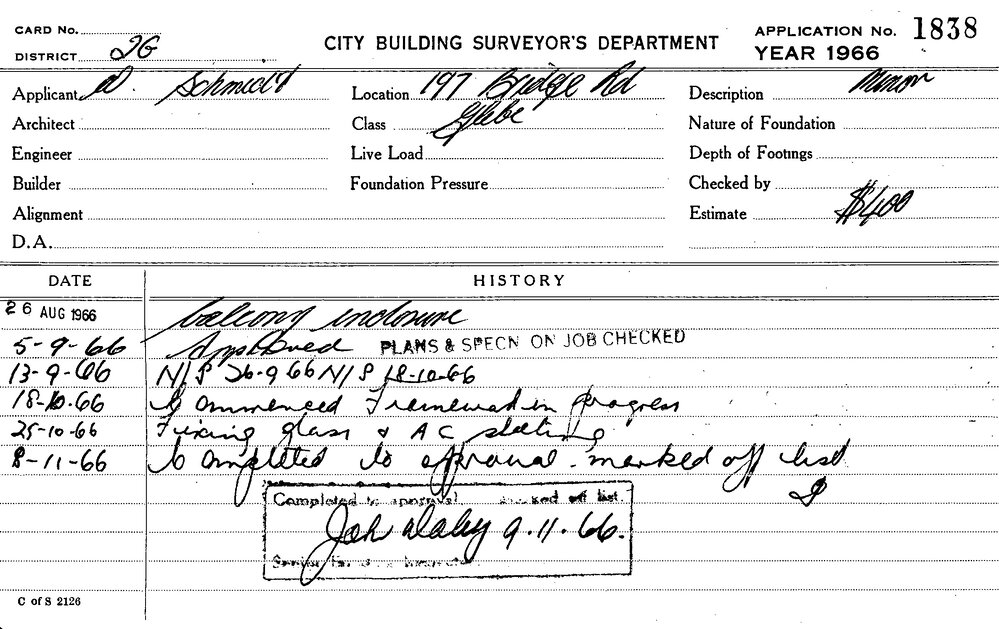 CARD No.
DISTRICT 2G
CITY BUILDING SURVEYOR'S DEPARTMENT
APPLICATION No. 1838
YEAR 1966
Applicant D. Schmidt Location 197 Bridge Rd Description Minor
Architect Class Glebe Nature of Foundation
Engineer Live Load Depth of Footings
Builder Foundation Pressure Checked by
Alignment Estimate $400
D.A.
DATE HISTORY
26 AUG 1966 balcony enclosure
5-9-66 Approved PLANS & SPECN ON JOB CHECKED
13-9-66 N/S 26-9 66 N/S 18-10-66
18-10.66 Commenced Framework in progress
25-10-66 Fixing glass & A C sheeting
8-11-66 Completed to approval - marked off list
Completed to approval. marked off list.
9.11.66.
C of S 2126